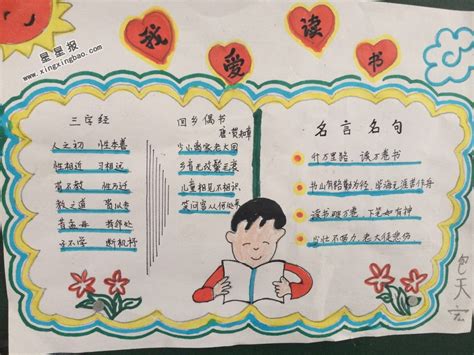 星星报
www.xingxingbao.com
我爱读书
三字经
人之初 性本善
性相近 习相远
苟不教 性乃迁
教之道 贵以专
昔孟母 择邻处
子不学 断机杼
回乡偶书
唐·贺知章
少小离家老大回
乡音无改鬓毛衰
儿童相见不相识
笑问客从何处来
名言名句
行万里路、读万卷书
书山有路勤为径,学海无涯苦作舟
读书破万卷,下笔如有神
少壮不努力,老大徒悲伤